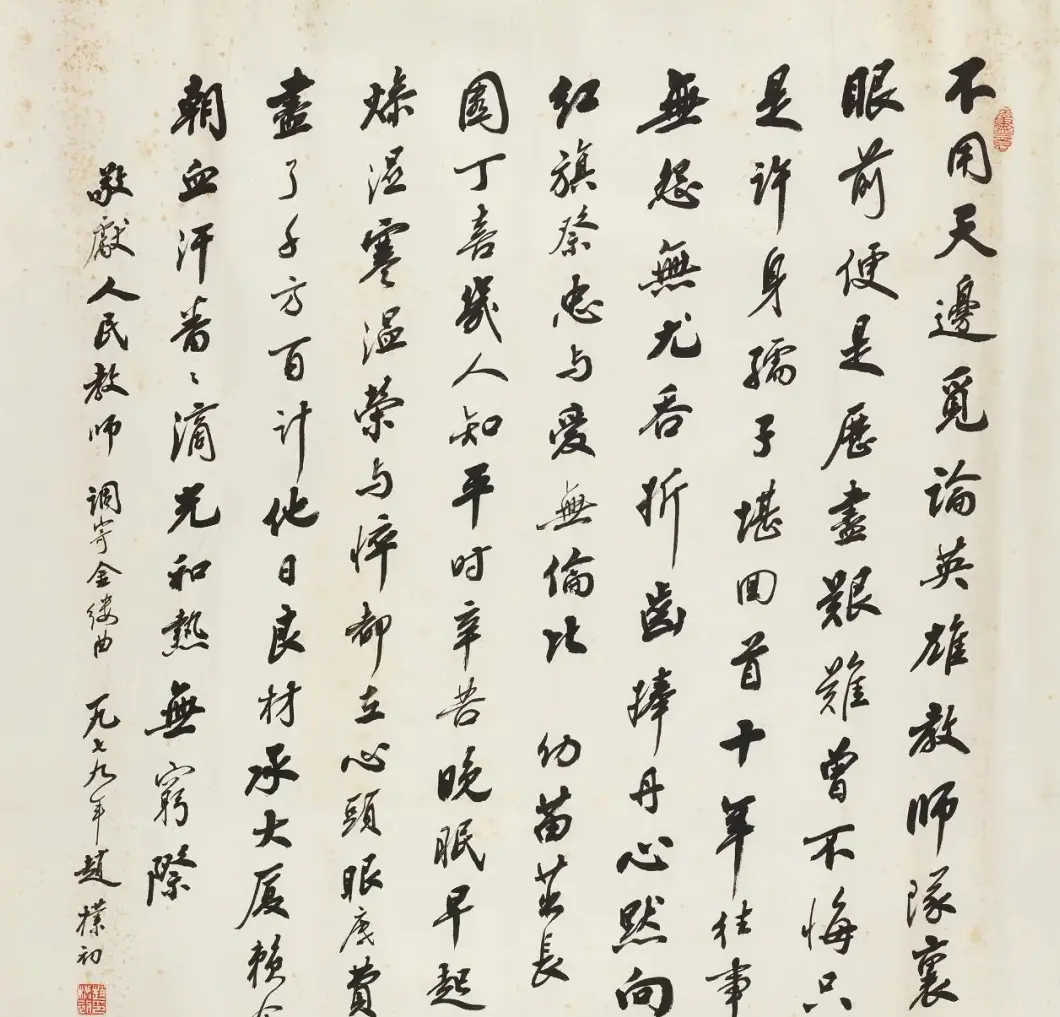 不用天邊覓論英雄教師隊裏
眼前便是歷盡艱難曾不悔只
是許身孺子堪回首十年往事
無怨無尤吞折齒捧丹心默向
红旗祭忠与愛無倫比 幼苗茁長
園丁喜幾人知平时辛苦晚眠早起
燥湿寒温榮与悴都在心頭眼底費
盡了千方百計他日良材承大厦赖今
朝血汗番〻滴光和熱無窮際
敬獻人民教師 调寄金缕曲 一九七九年趙樸初